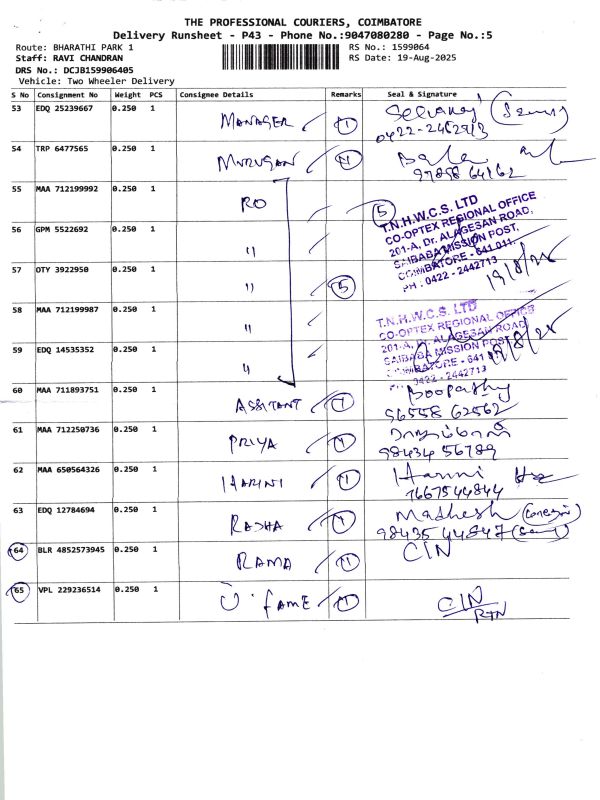 THE PROFESSIONAL COURIERS, COIMBATORE
Delivery Runsheet - P43 - Phone No.:9047080280 - Page No.:5
Route: BHARATHI PARK 1 RS No.: 1599064
Staff: RAVI CHANDRAN RS Date: 19-Aug-2025
DRS No.: DCJB159906405
Vehicle: Two Wheeler Delivery
S No Consignment No Weight PCS Consignee Details Remarks Seal & Signature
53 EDQ 25239667 0.250 1 MANAGER 1
54 TRP 6477565 0.250 1 MURUGAN 1
97898 64162
55 MAA 712199992 0.250 1 RO 5
T.N.H.W.C.S. LTD
CO-OPTEX REGIONAL OFFICE
201-A, Dr. ALAGESAN ROAD,
SAIBABA MISSION POST,
COIMBATORE - 641 011.
PH : 0422 - 2442713
56 GPM 5522692 0.250 1 "
57 OTY 3922950 0.250 1 " 5
19/8/25
58 MAA 712199987 0.250 1 "
T.N.H.W.C.S. LTD
CO-OPTEX REGIONAL OFFICE
201-A, Dr. ALAGESAN ROAD,
SAIBABA MISSION POST,
COIMBATORE - 641
PH : 0422 - 2442713
19/8/25
59 EDQ 14535352 0.250 1 "
60 MAA 711893751 0.250 1 ASSITANT 1 Boopathy
96558 62562
61 MAA 712250736 0.250 1 PRIYA 1
98434 56789
62 MAA 650564326 0.250 1 HARINI 1 Harini
7667544844
63 EDQ 12784694 0.250 1 RADHA 1 Madhesh
98435 44847
64 BLR 4852573945 0.250 1 RAMA 1 CIN
65 VPL 229236514 0.250 1 U. FAME 1 CIN
RTN